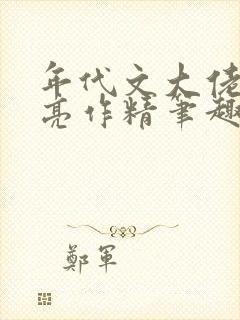 年代文大佬
亮作精笔趣
鄭軍